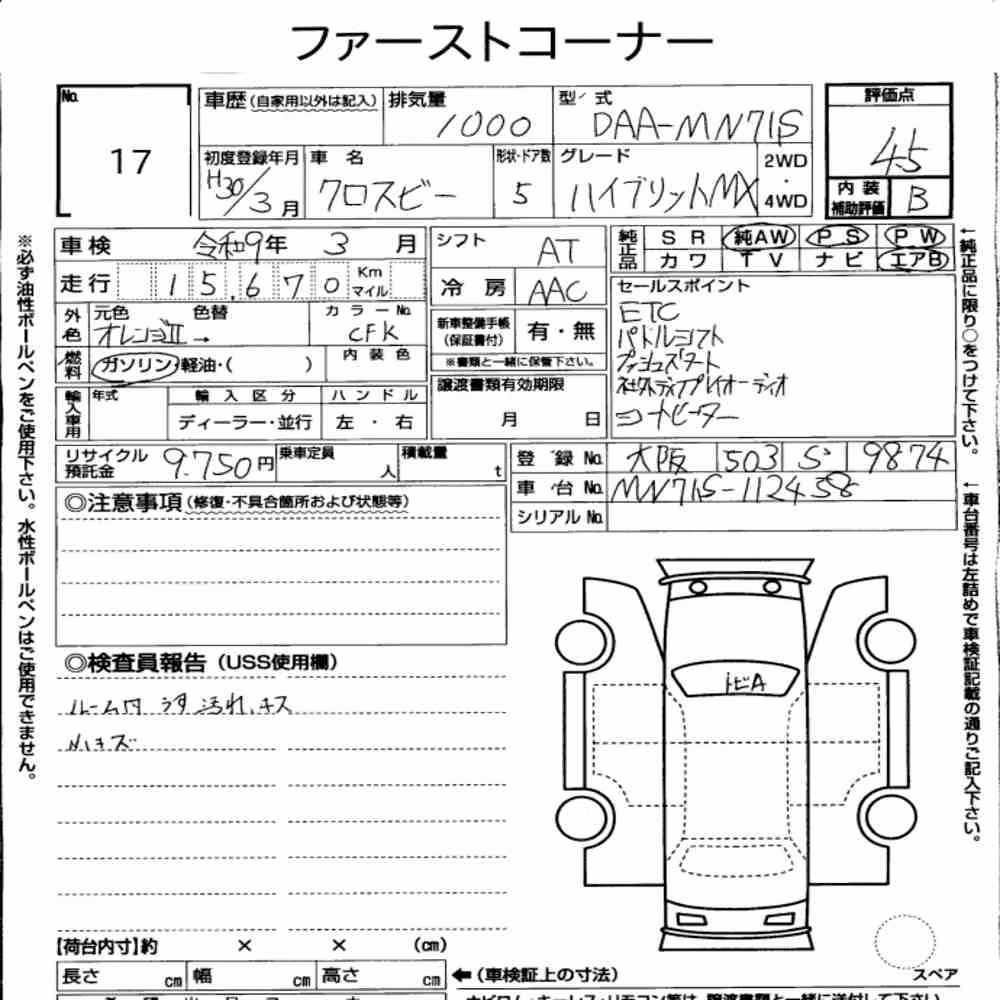 ファーストコーナー
No.
17
車歴(自家用以外は記入)
排気量
1000
型 式
DAA-MN71S
評価点
4.5
初度登録年月
H30/3月
車 名
クロスビー
形状・ドア数
5
グレード
ハイブリットMX
2WD
・
4WD
内 装
補助評価
B
車検
令和9年 3 月
走行
15,670
Km
マイル
外色
元色
オレンジII →
色替
カラーNo.
CFK
燃料
ガソリン・軽油・( )
内 装 色
輸入車用
年式
輸 入 区 分
ディーラー・並行
ハ ン ド ル
左 ・ 右
シフト
AT
冷 房
AAC
新車整備手帳
(保証書付)
有・無
※書類と一緒に保管下さい。
譲渡書類有効期限
月 日
純正品
S R 純AW P S P W
カ ワ T V ナ ビ エアB
セールスポイント
ETC
パドルシフト
プッシュスタート
社外ディスプレイオーディオ
シートヒーター
リサイクル
預託金
9.750円
乗車定員
人
積載量
t
登 録 No.
大阪 503 さ 9874
車 台 No.
MN71S-112458
シリアル No.
◎注意事項(修復・不具合箇所および状態等)
◎検査員報告(USS使用欄)
ルーム内 うす汚れ、キズ
小キズ
トビA
【荷台内寸】約 × × (cm)
長さ cm
幅 cm
高さ cm
←(車検証上の寸法)
スペア
※必ず油性ボールペンをご使用下さい。水性ボールペンはご使用できません。
←純正品に限り○をつけて下さい。
←車台番号は左詰めで車検証記載の通りご記入下さい。